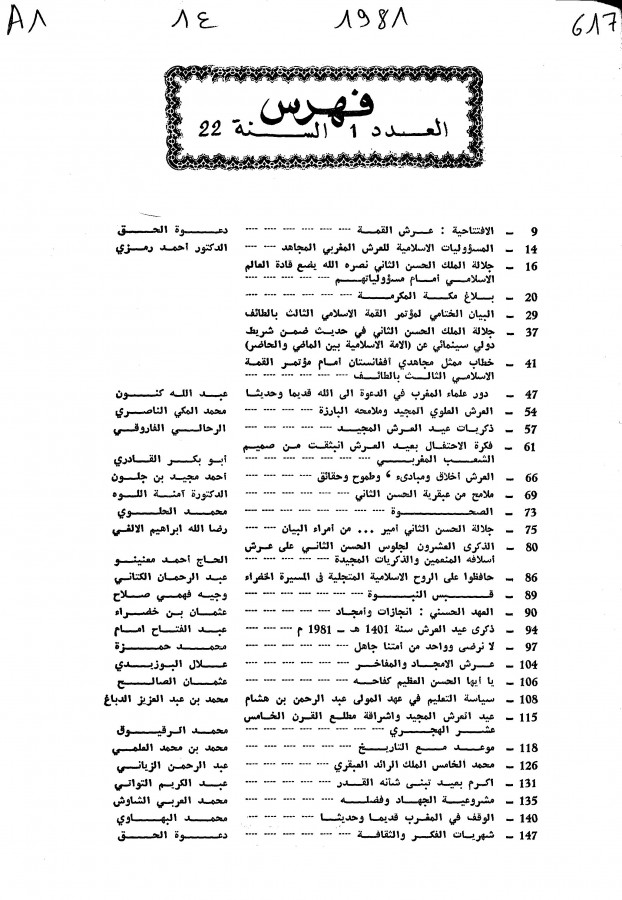 A1 ١٤ 1981 617
فهرس
العدد 1 السنة 22
9 ـ الافتتاحية : عرش القمة دعوة الحق
14 ـ المسؤوليات الاسلامية للعرش المغربي المجاهد الدكتور أحمد رمزي
16 ـ جلالة الملك الحسن الثاني نصره الله يضع قادة العالم
الاسلامي أمام مسؤولياتهم
20 ـ بلاغ مكة المكرمة
29 ـ البيان الختامي لمؤتمر القمة الاسلامي الثالث بالطائف
37 ـ جلالة الملك الحسن الثاني في حديث ضمن شريط
دولي سينمائي عن (الامة الاسلامية بين الماضي والحاضر)
41 ـ خطاب ممثل مجاهدي أفغانستان أمام مؤتمر القمة
الاسلامي الثالث بالطائف
47 ـ دور علماء المغرب في الدعوة الى الله قديما وحديثا عبد الله كنون
54 ـ العرش العلوي المجيد وملامحه البارزة محمد المكي الناصري
57 ـ ذكريات عيد العرش المجيد الرحالي الفاروقي
61 ـ فكرة الاحتفال بعيد العرش انبثقت من صميم
الشعب المغربي أبو بكر القادري
66 ـ العرش أخلاق ومبادىء ، وطموح وحقائق أحمد مجيد بن جلون
69 ـ ملامح من عبقرية الحسن الثاني الدكتورة آمنة اللوه
73 ـ الصحوة محمد الحلوي
75 ـ جلالة الحسن الثاني أمير ... من أمراء البيان رضا الله ابراهيم الالفي
80 ـ الذكرى العشرون لجلوس الحسن الثاني على عرش
أسلافه المنعمين والذكريات المجيدة الحاج أحمد معنينو
86 ـ حافظوا على الروح الاسلامية المتجلية في المسيرة الخضراء عبد الرحمان الكتاني
89 ـ قبس النبوة وجيه فهمي صلاح
90 ـ العهد الحسني : انجازات وأمجاد عثمان بن خضراء
94 ـ ذكرى عيد العرش سنة 1401 هـ ـ 1981 م عبد الفتاح امام
97 ـ لا نرضى وواحد من أمتنا جاهل محمد حمزة
104 ـ عرش الامجاد والمفاخر علال البوزيدي
106 ـ يا أيها الحسن العظيم كفاحه عثمان الصالح
108 ـ سياسة التعليم في عهد المولى عبد الرحمن بن هشام محمد بن عبد العزيز الدباغ
115 ـ عيد العرش المجيد واشراقة مطلع القرن الخامس
عشر الهجري محمد الرقيوق
118 ـ موعد مع التاريخ محمد بن محمد العلمي
126 ـ محمد الخامس الملك الرائد العبقري عبد الرحمن الزياني
131 ـ اكرم بعيد تبنى شانه القدر عبد الكريم التواتي
135 ـ مشروعية الجهاد وفضله محمد العربي الشاوش
140 ـ الوقف في المغرب قديما وحديثا محمد البهاوي
147 ـ شهريات الفكر والثقافة دعوة الحق